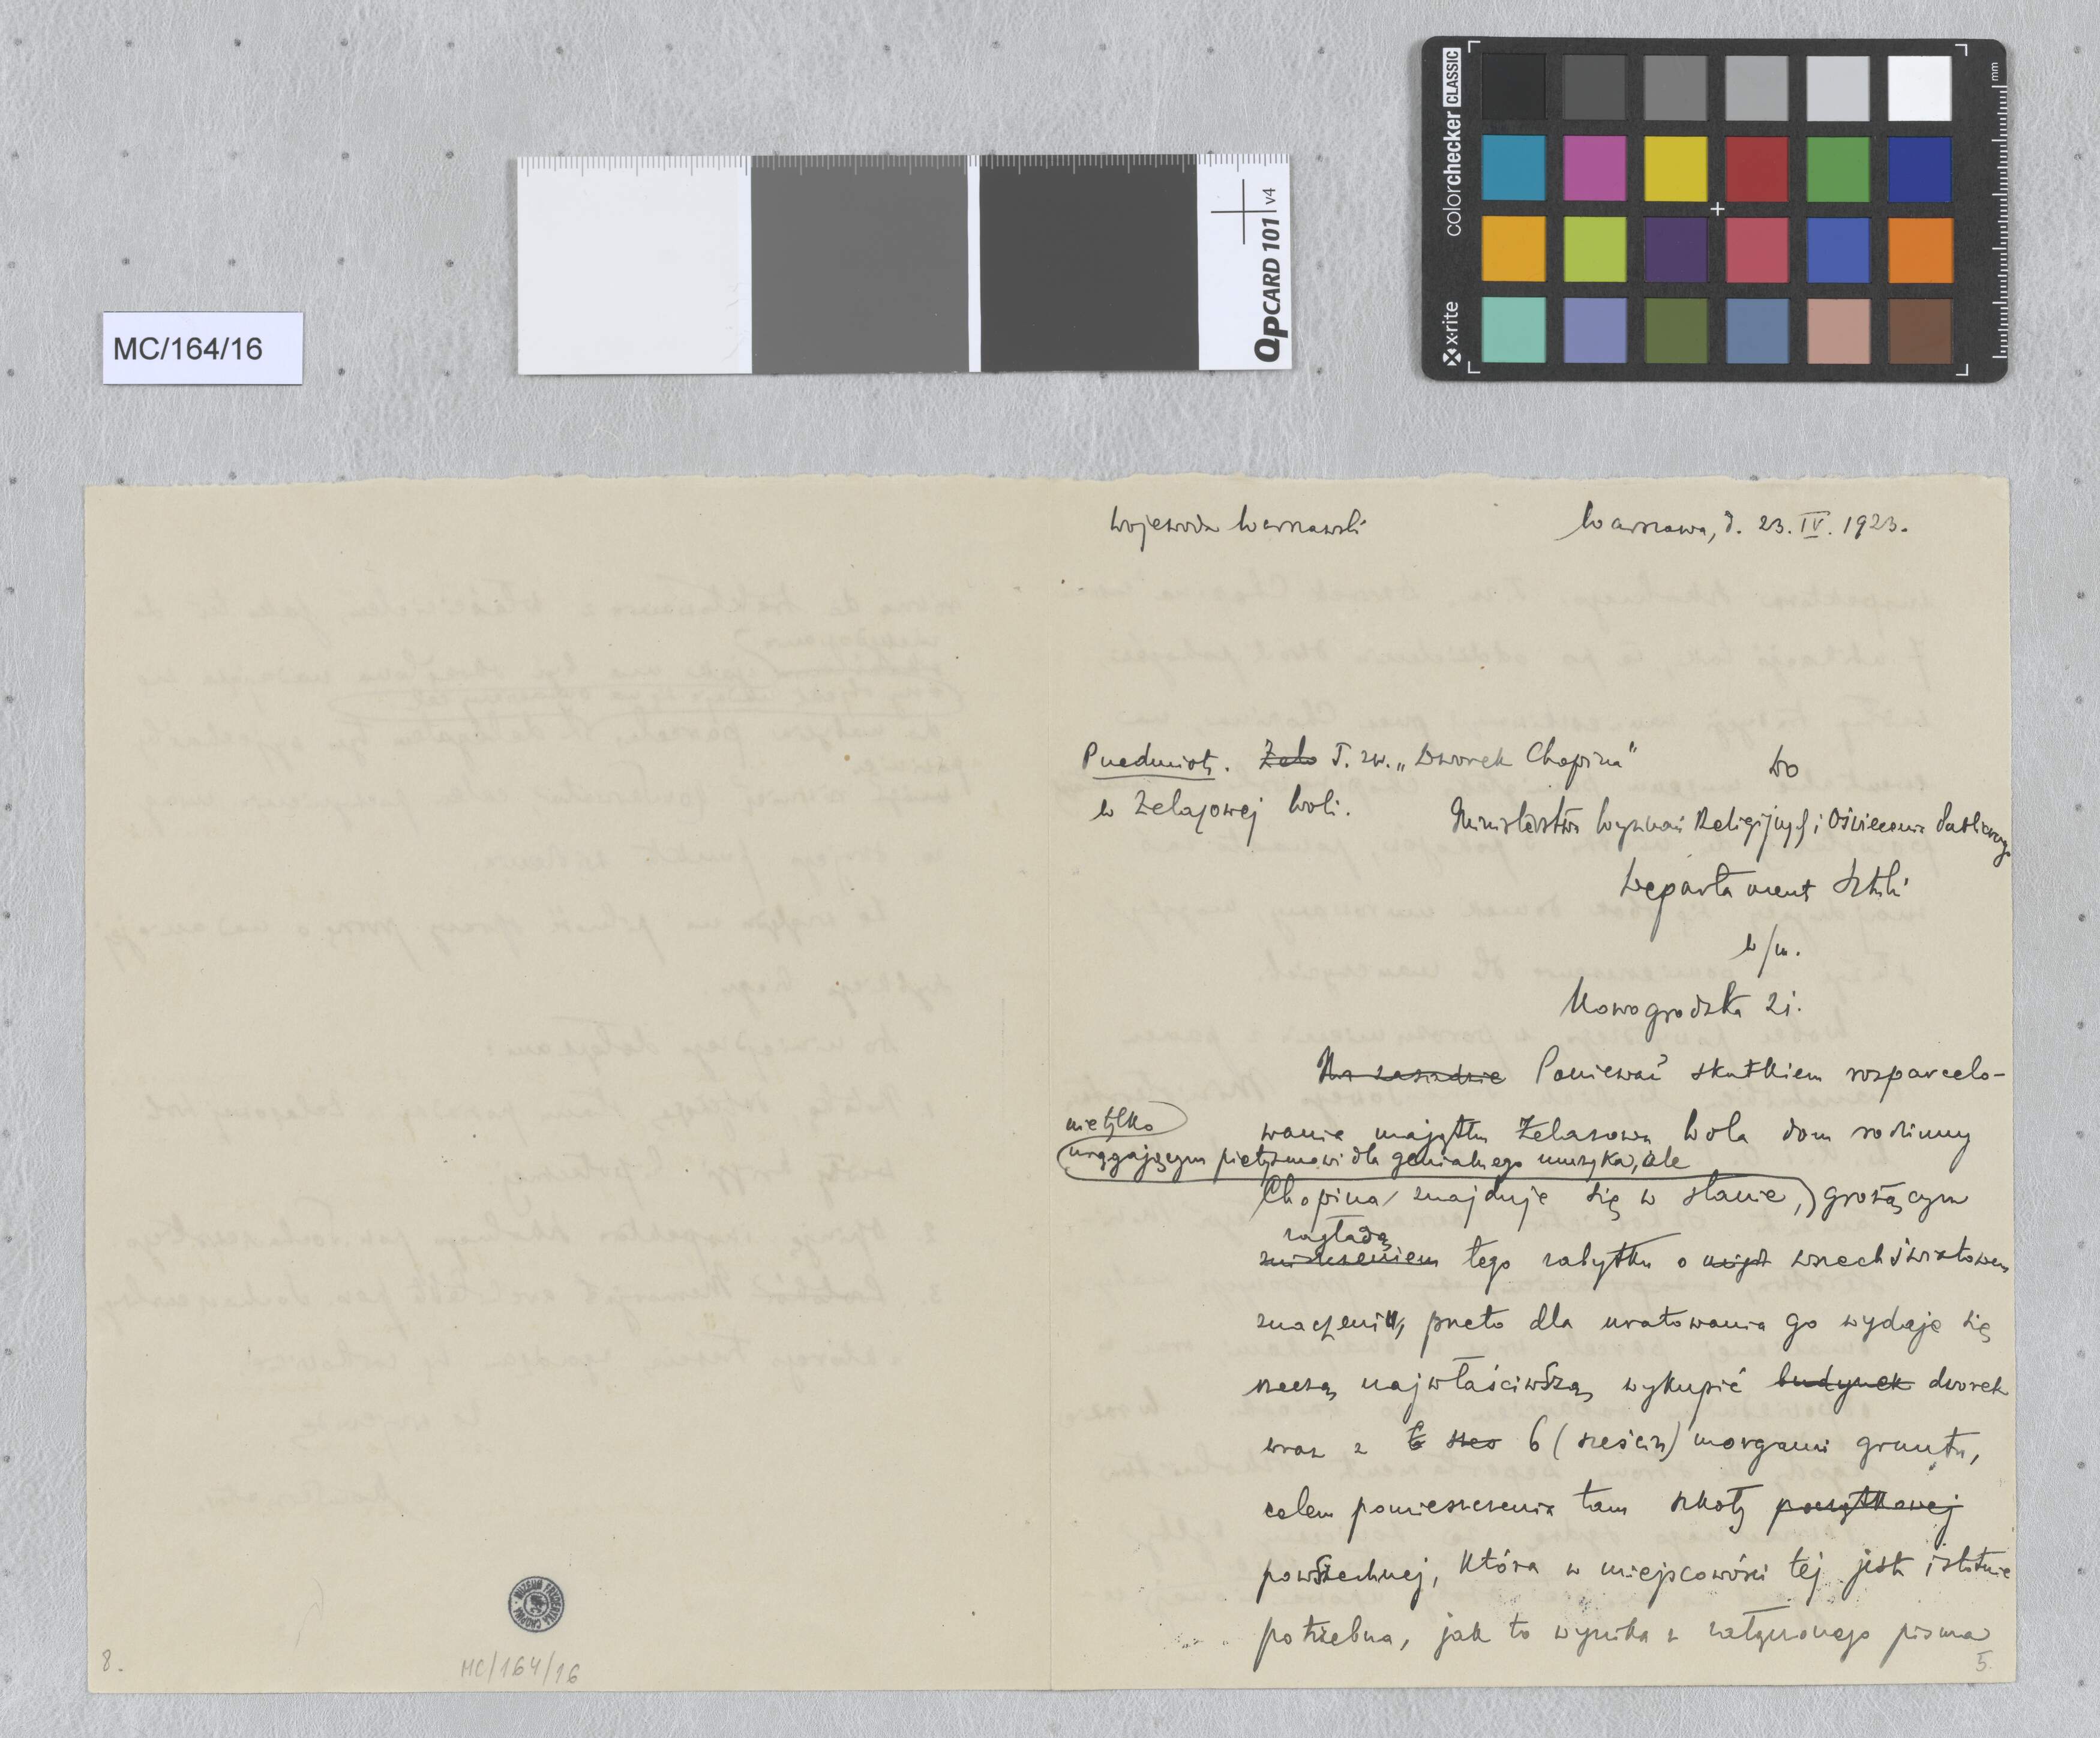 MC/164/16
QPCARD 101 v4
colorchecker CLASSIC
x-rite
mm
Wojewoda Warszawski
Warszawa, d. 23. IV. 1923.
Przedmiot. Żela T. zw. „Dworek Chopina"
w Żelazowej Woli.
Do
Ministerstwa Wyznań Religijnych i Oświecenia Publicznego
Departament Sztuki
w/m.
Nowogrodzka 21.
Na zasadzie Ponieważ skutkiem rozparcelo-
wania majątku Żelazowa Wola dom rodzinny
nietylko
urągającym pietyzmowi dla genialnego muzyka, ale
Chopina znajduje się w stanie, grożącym
zagładą
zniszczeniem tego zabytku o wszechświatowem
znaczeniu, przeto dla uratowania go wydaje się
rzeczą najwłaściwszą wykupić budynek dworek
wraz z 6 (sześciu) morgami gruntu,
celem pomieszczenia tam szkoły początkowej
powszechnej, która w miejscowości tej jest istotnie
potrzebna, jak to wynika z załączonego pisma
5.
8.
MUZEUM FRYDERYKA CHOPINA
MC/164/16